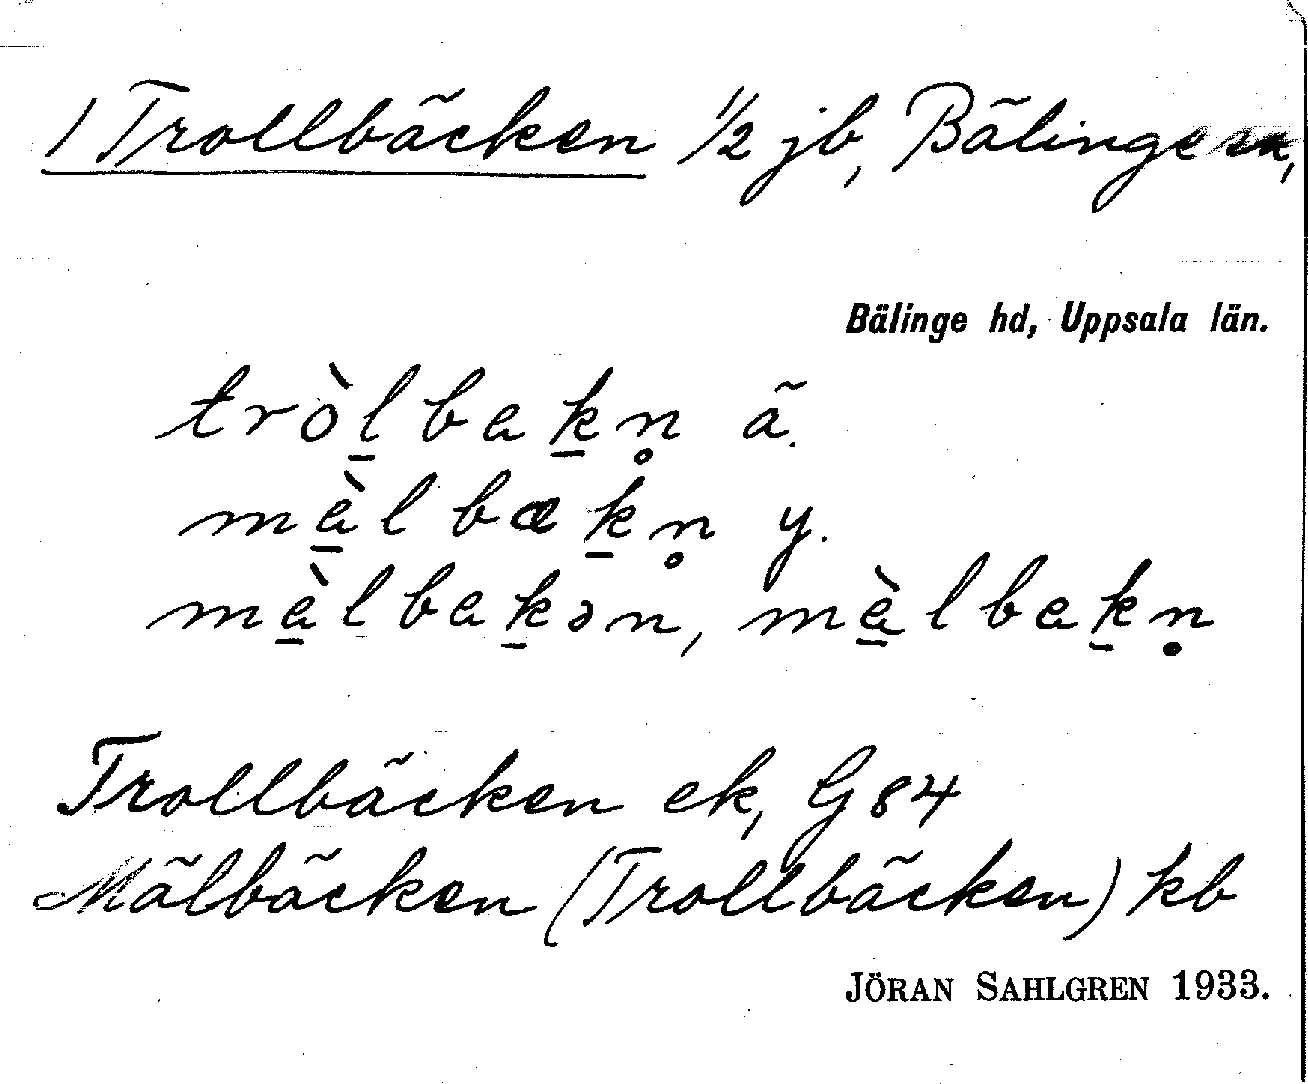 1 Trollbäcken 1/2 jb, Bälinge sn,
Bälinge hd, Uppsala län.
tròl̠bak̠n̥ ä.
mà̠lbæk̠n̥ y.
mà̠lbak̠ən, mà̠lbak̠n̥
Trollbäcken ek, G 84
Mälbäcken (Trollbäcken) kb
JÖRAN SAHLGREN 1933.